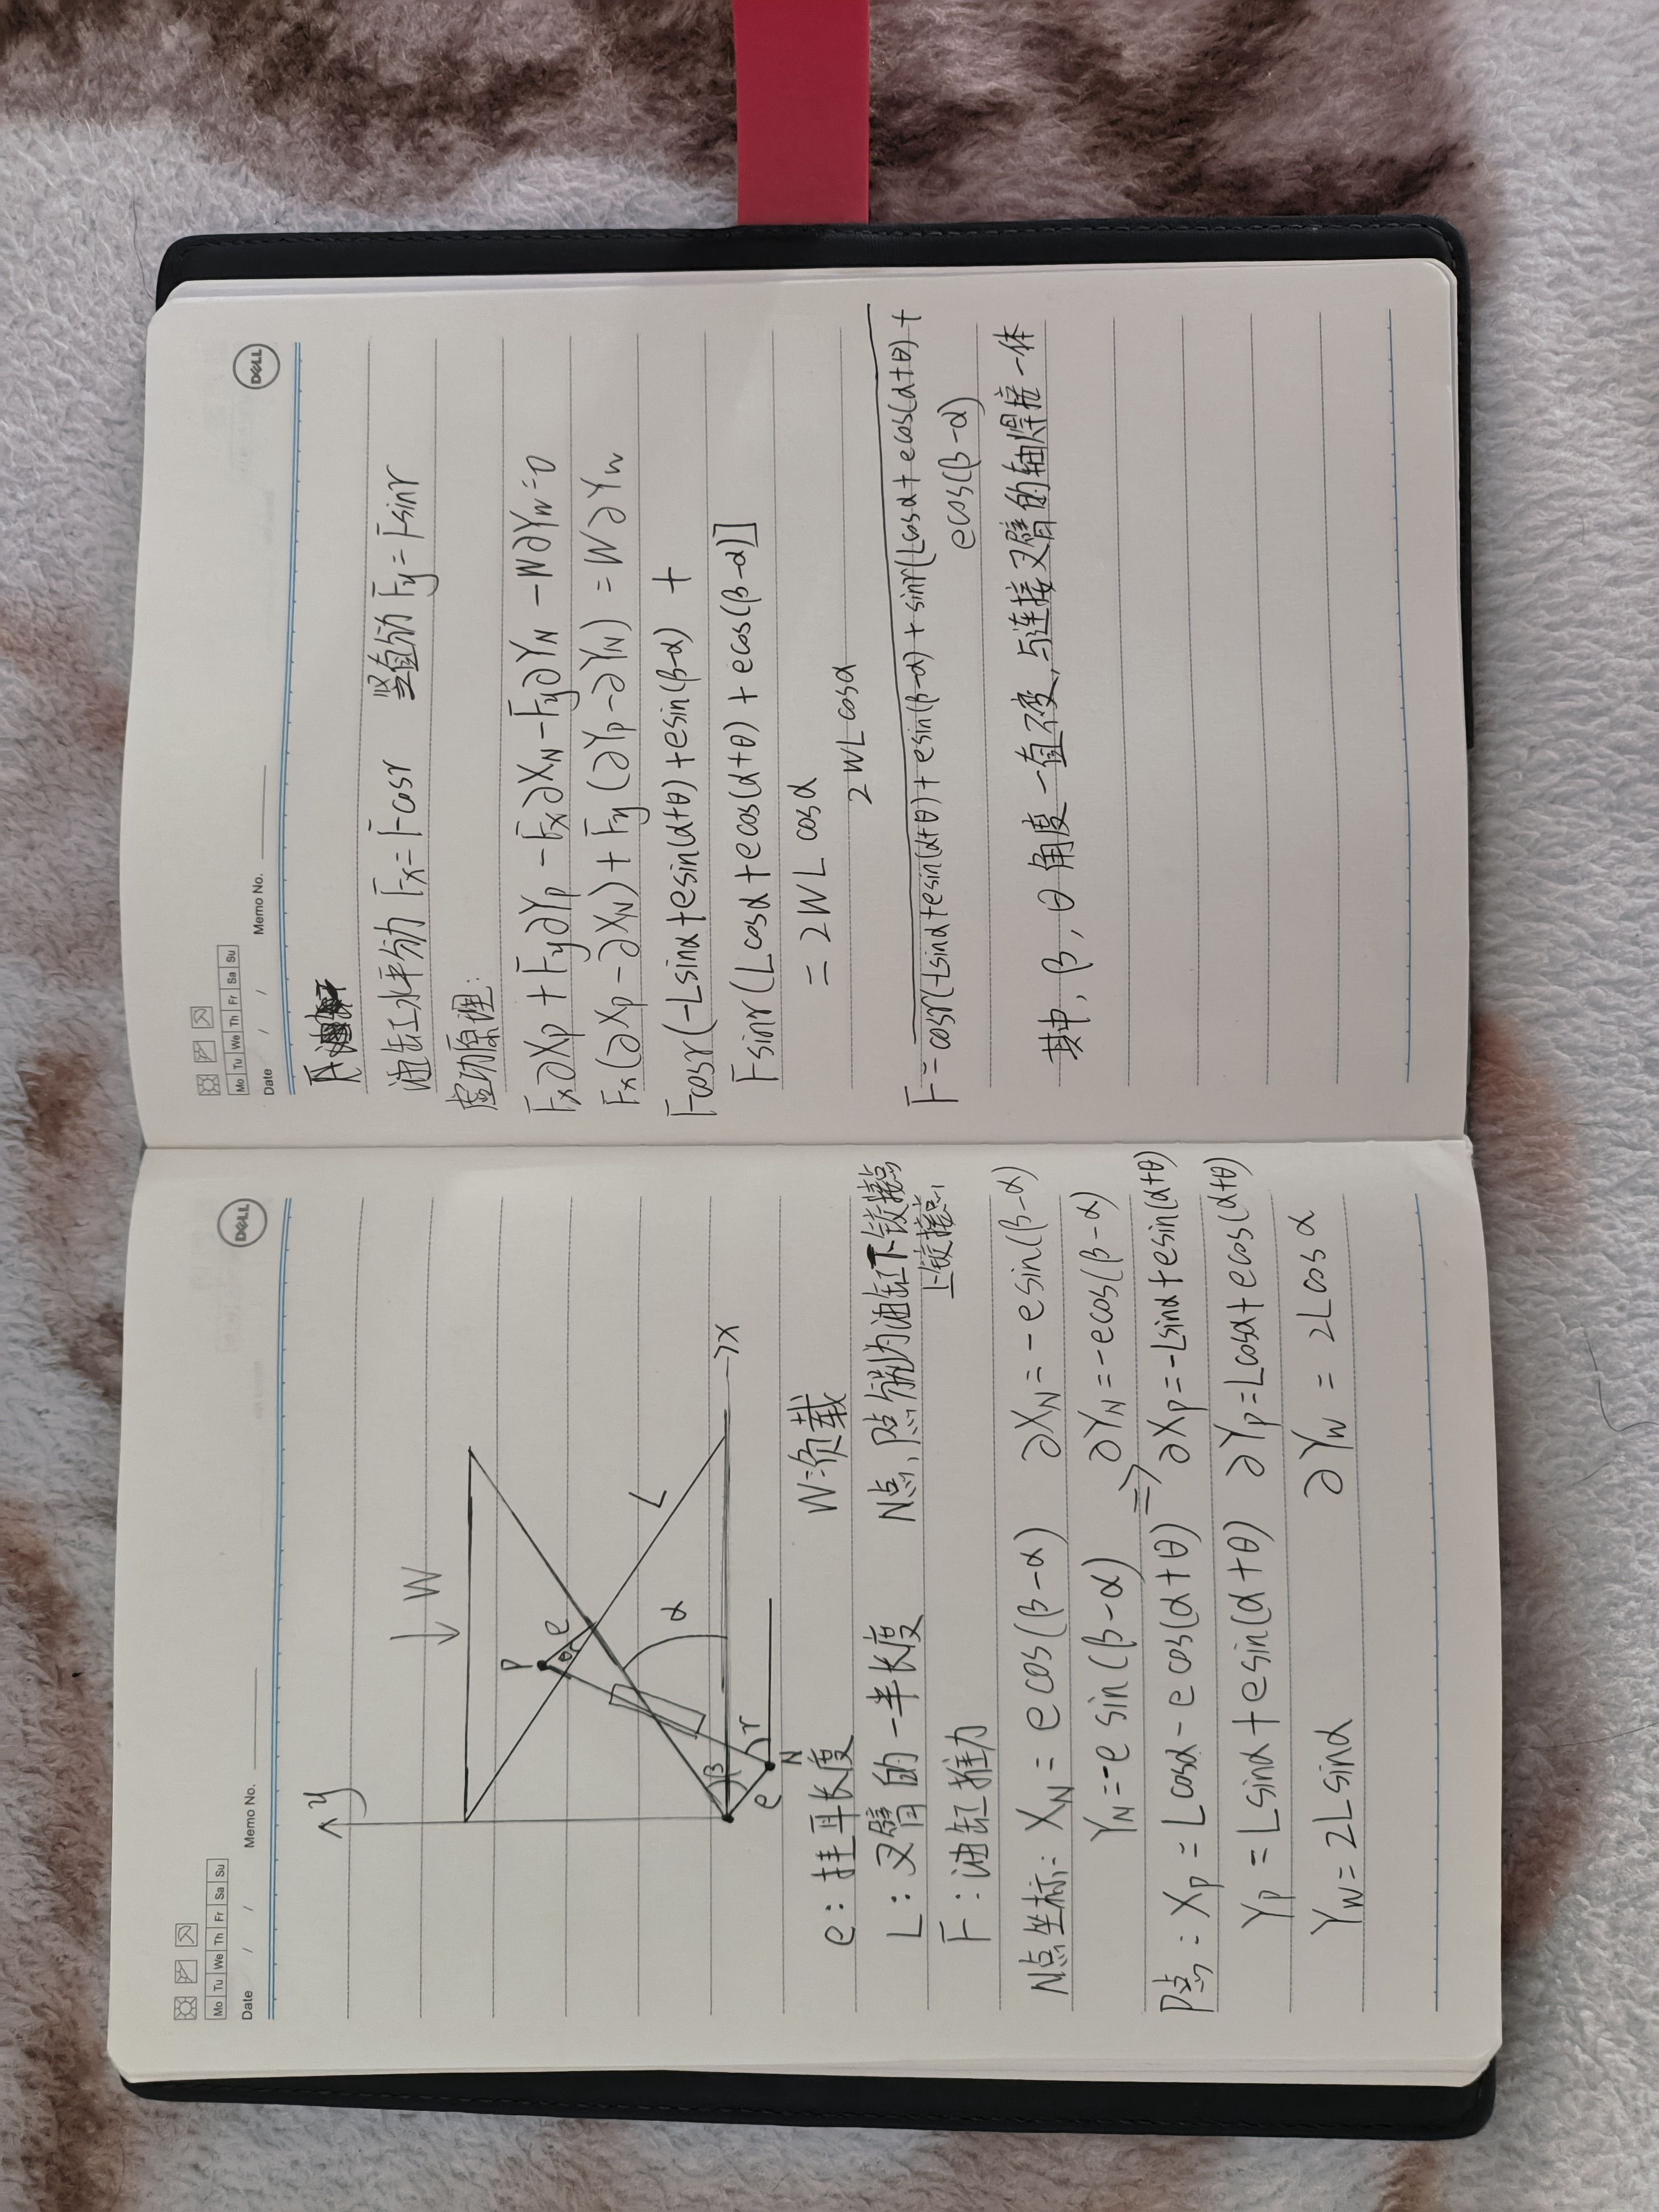 Mo Tu We Th Fr Sa Su
Date / /
Memo No.
DELL
y
W
P
e
θ
L
α
β
r
e
N
x
e:挂耳长度 W:负载
L:叉臂的一半长度 N点、P点分别为油缸下铰接点
上铰接点
F:油缸推力
N点坐标: X_N = e cos(β-α) ∂X_N = -e sin(β-α)
Y_N = -e sin(β-α) ∂Y_N = -e cos(β-α)
=>
P点: X_P = L cosα - e cos(α+θ) ∂X_P = -L sinα + e sin(α+θ)
Y_P = L sinα + e sin(α+θ) ∂Y_P = L cosα + e cos(α+θ)
Y_W = 2L sinα ∂Y_W = 2L cosα
Mo Tu We Th Fr Sa Su
Date / /
Memo No.
DELL
油缸水平力 Fx = F cosr 竖直力 Fy = F sinr
虚功原理:
Fx∂X_P + Fy∂Y_P - Fx∂X_N - Fy∂Y_N - W∂Y_W = 0
Fx(∂X_P - ∂X_N) + Fy(∂Y_P - ∂Y_N) = W∂Y_W
F cosr(-L sinα + e sin(α+θ) + e sin(β-α) +
F sinr(L cosα + e cos(α+θ) + e cos(β-α)]
= 2WL cosα
2WL cosα
F = cosr(-L sinα + e sin(α+θ) + e sin(β-α) + sinr[L cosα + e cos(α+θ) +
e cos(β-α)
其中,β,θ角度一值不变,与连接叉臂的轴焊接一体